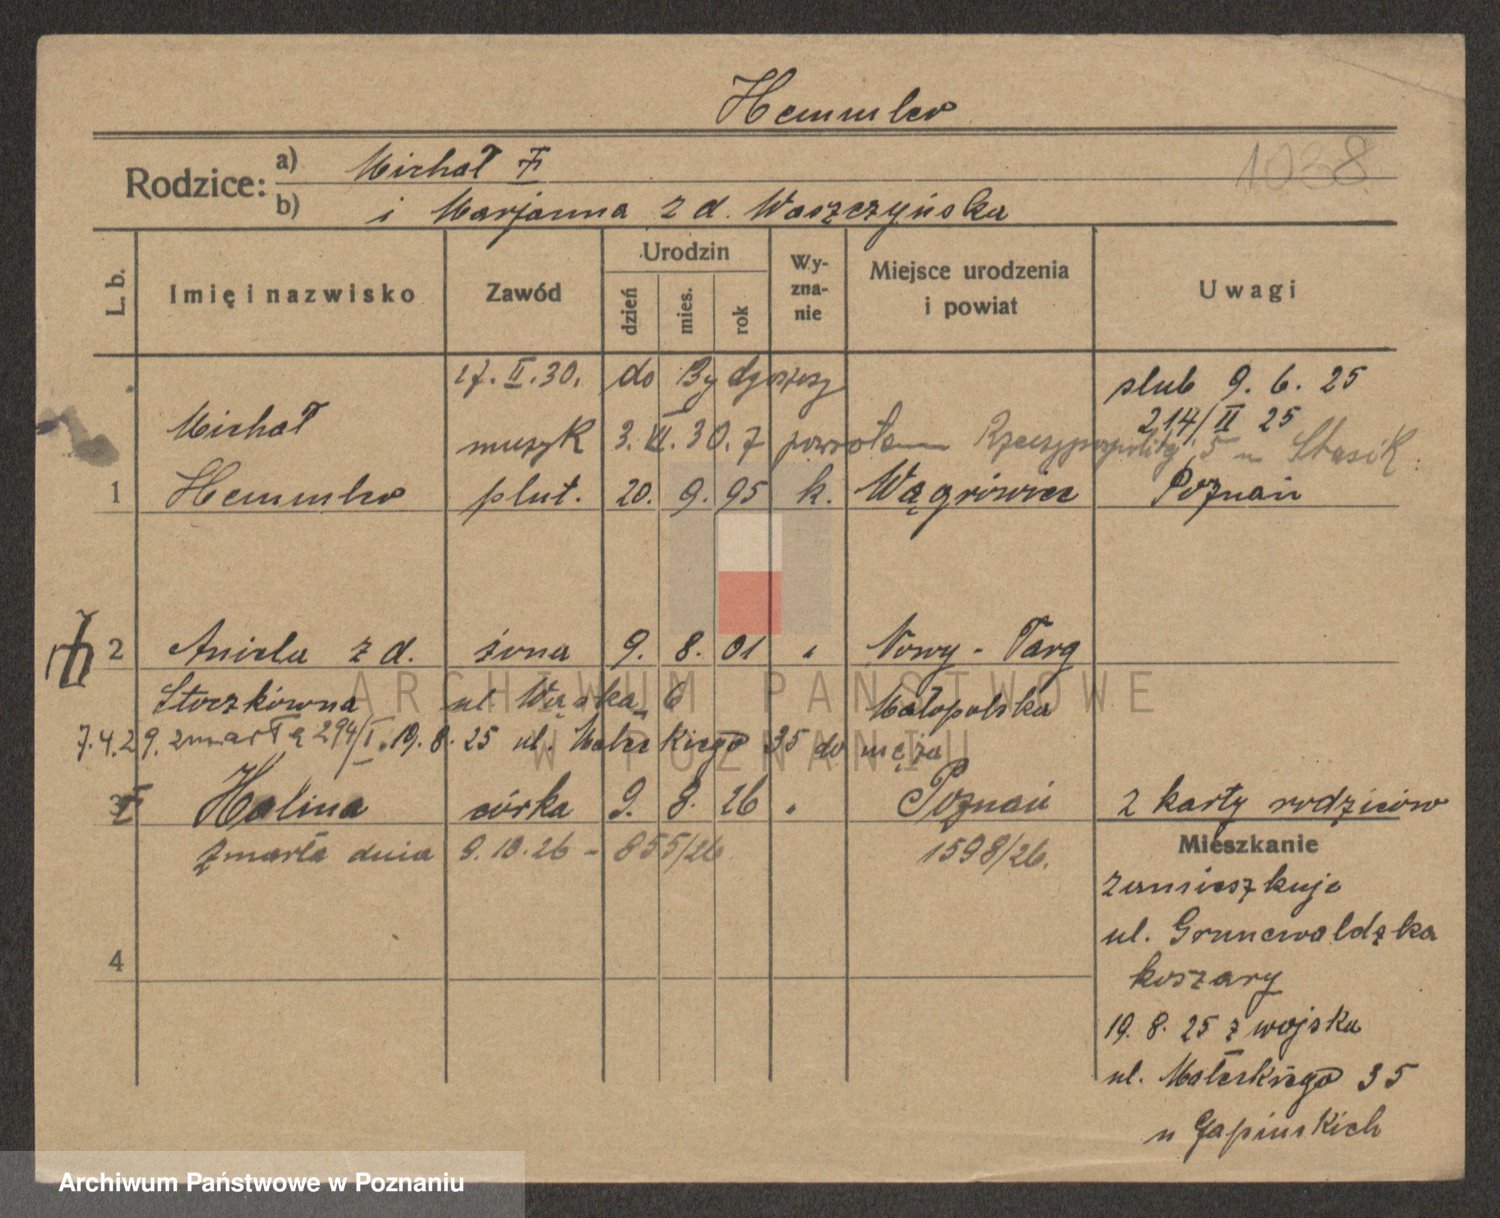 Hemmler
1038
Rodzice: a) Michał
b) i Marjanna z d. Waszczyńska
L. b.
Imię i nazwisko
Zawód
Urodzin
dzień
mies.
rok
Wy-
zna-
nie
Miejsce urodzenia
i powiat
Uwagi
17. II. 30. do Bydgoszczy
slub 9. 6. 25
214/II 25
Poznań
Michał muzyk 3. VI. 30. z powrotem Rzeczypospolitej 5 u Stasik
1 Hemmler plut. 20. 9. 95 k. Wągrówiec
2 Aniela z d. żona 9. 8. 01 " Nowy-Targ
Stoczkówna ul Wąska 6 Małopolska
7.4.29. zmarła 294/I. 19. 8. 25 ul. Małeckiego 35 do męża
3 Halina córka 9. 8. 26 " Poznań
zmarła dnia 9.10.26 - 855/26 1598/26.
4
2 karty rodziców
Mieszkanie
zamieszkuje
ul. Grunewaldzka
koszary
19. 8. 25 z wojska
ul. Małeckiego 35
u Gapińskich
ARCHIWUM PAŃSTWOWE
W POZNANIU
Archiwum Państwowe w Poznaniu